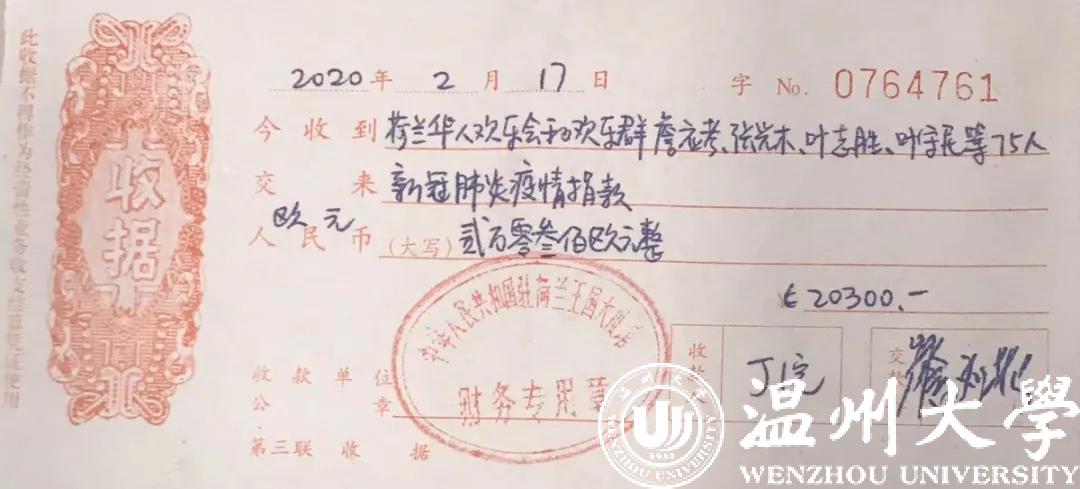 此收据不得作为经营性业务收支结算凭证使用
收据
2020年 2月 17日 字 No. 0764761
今收到 荷兰华人欢乐会和欢乐群詹应考、张光木、叶志胜、叶宇民等75人
交来 新冠肺炎疫情捐款
欧元
人民币(大写) 贰万零叁佰欧元整
€ 20300.-
中华人民共和国驻荷兰王国大使馆
财务专用章
收款单位公章
收款
交款
第三联 收据
温州大学
WENZHOU UNIVERSITY
1933